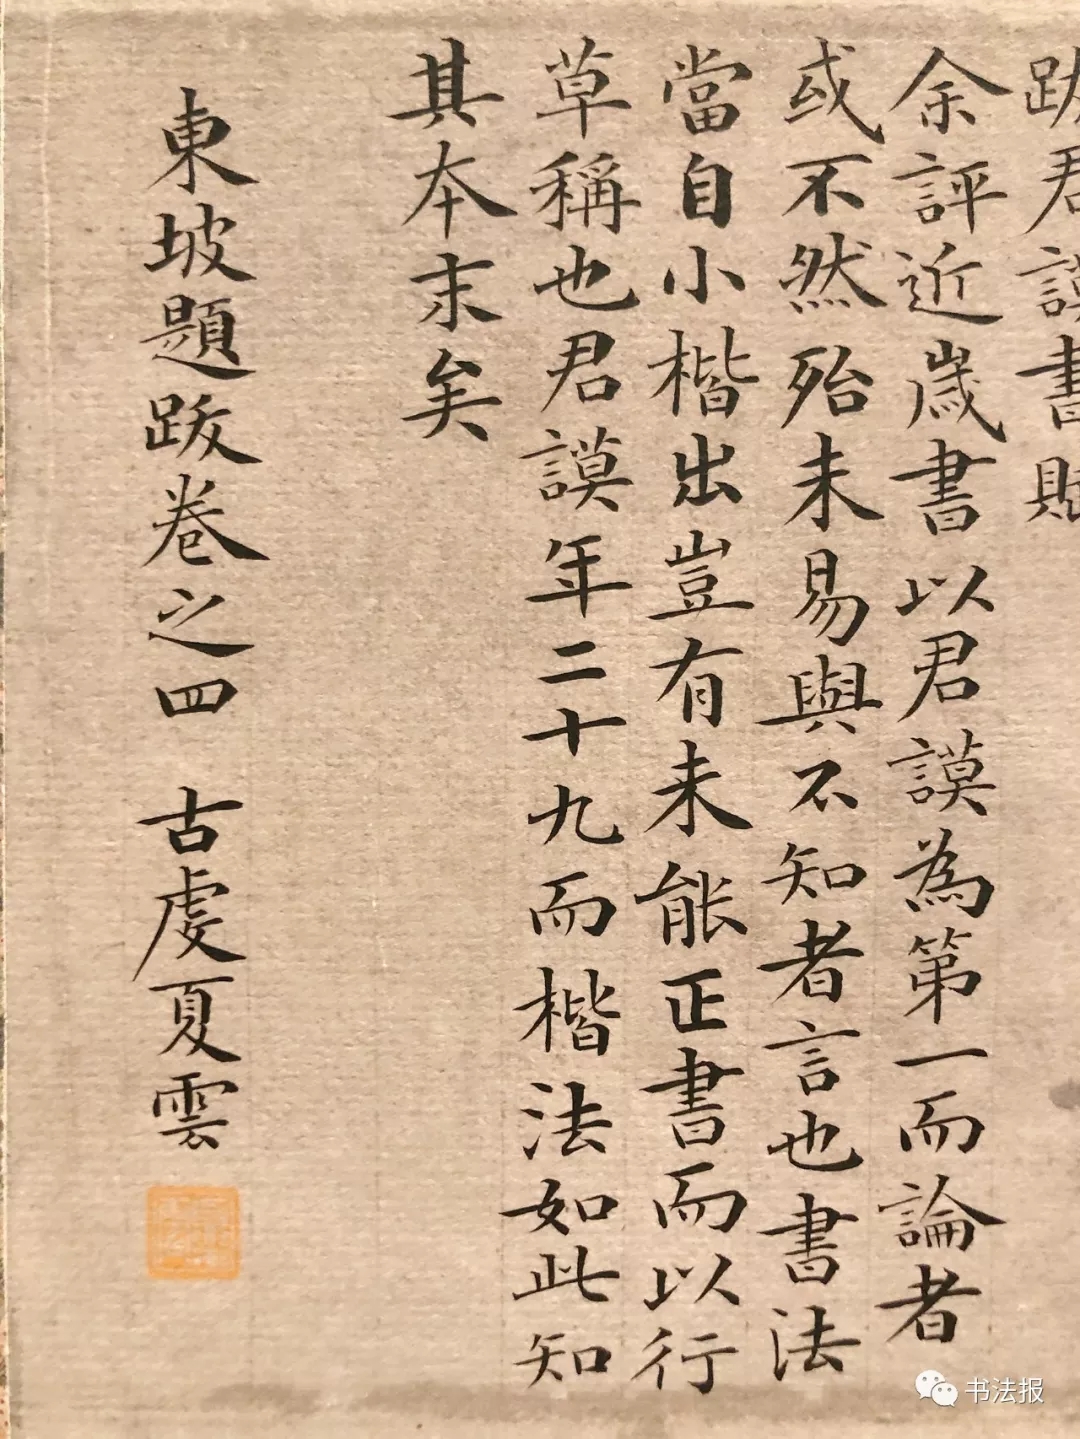 跋君謨書賦
余評近歲書以君謨為第一而論者
或不然殆未易與不知者言也書法
當自小楷出豈有未能正書而以行
草稱也君謨年二十九而楷法如此知
其本末矣
東坡題跋卷之四 古虞夏雲
书法报